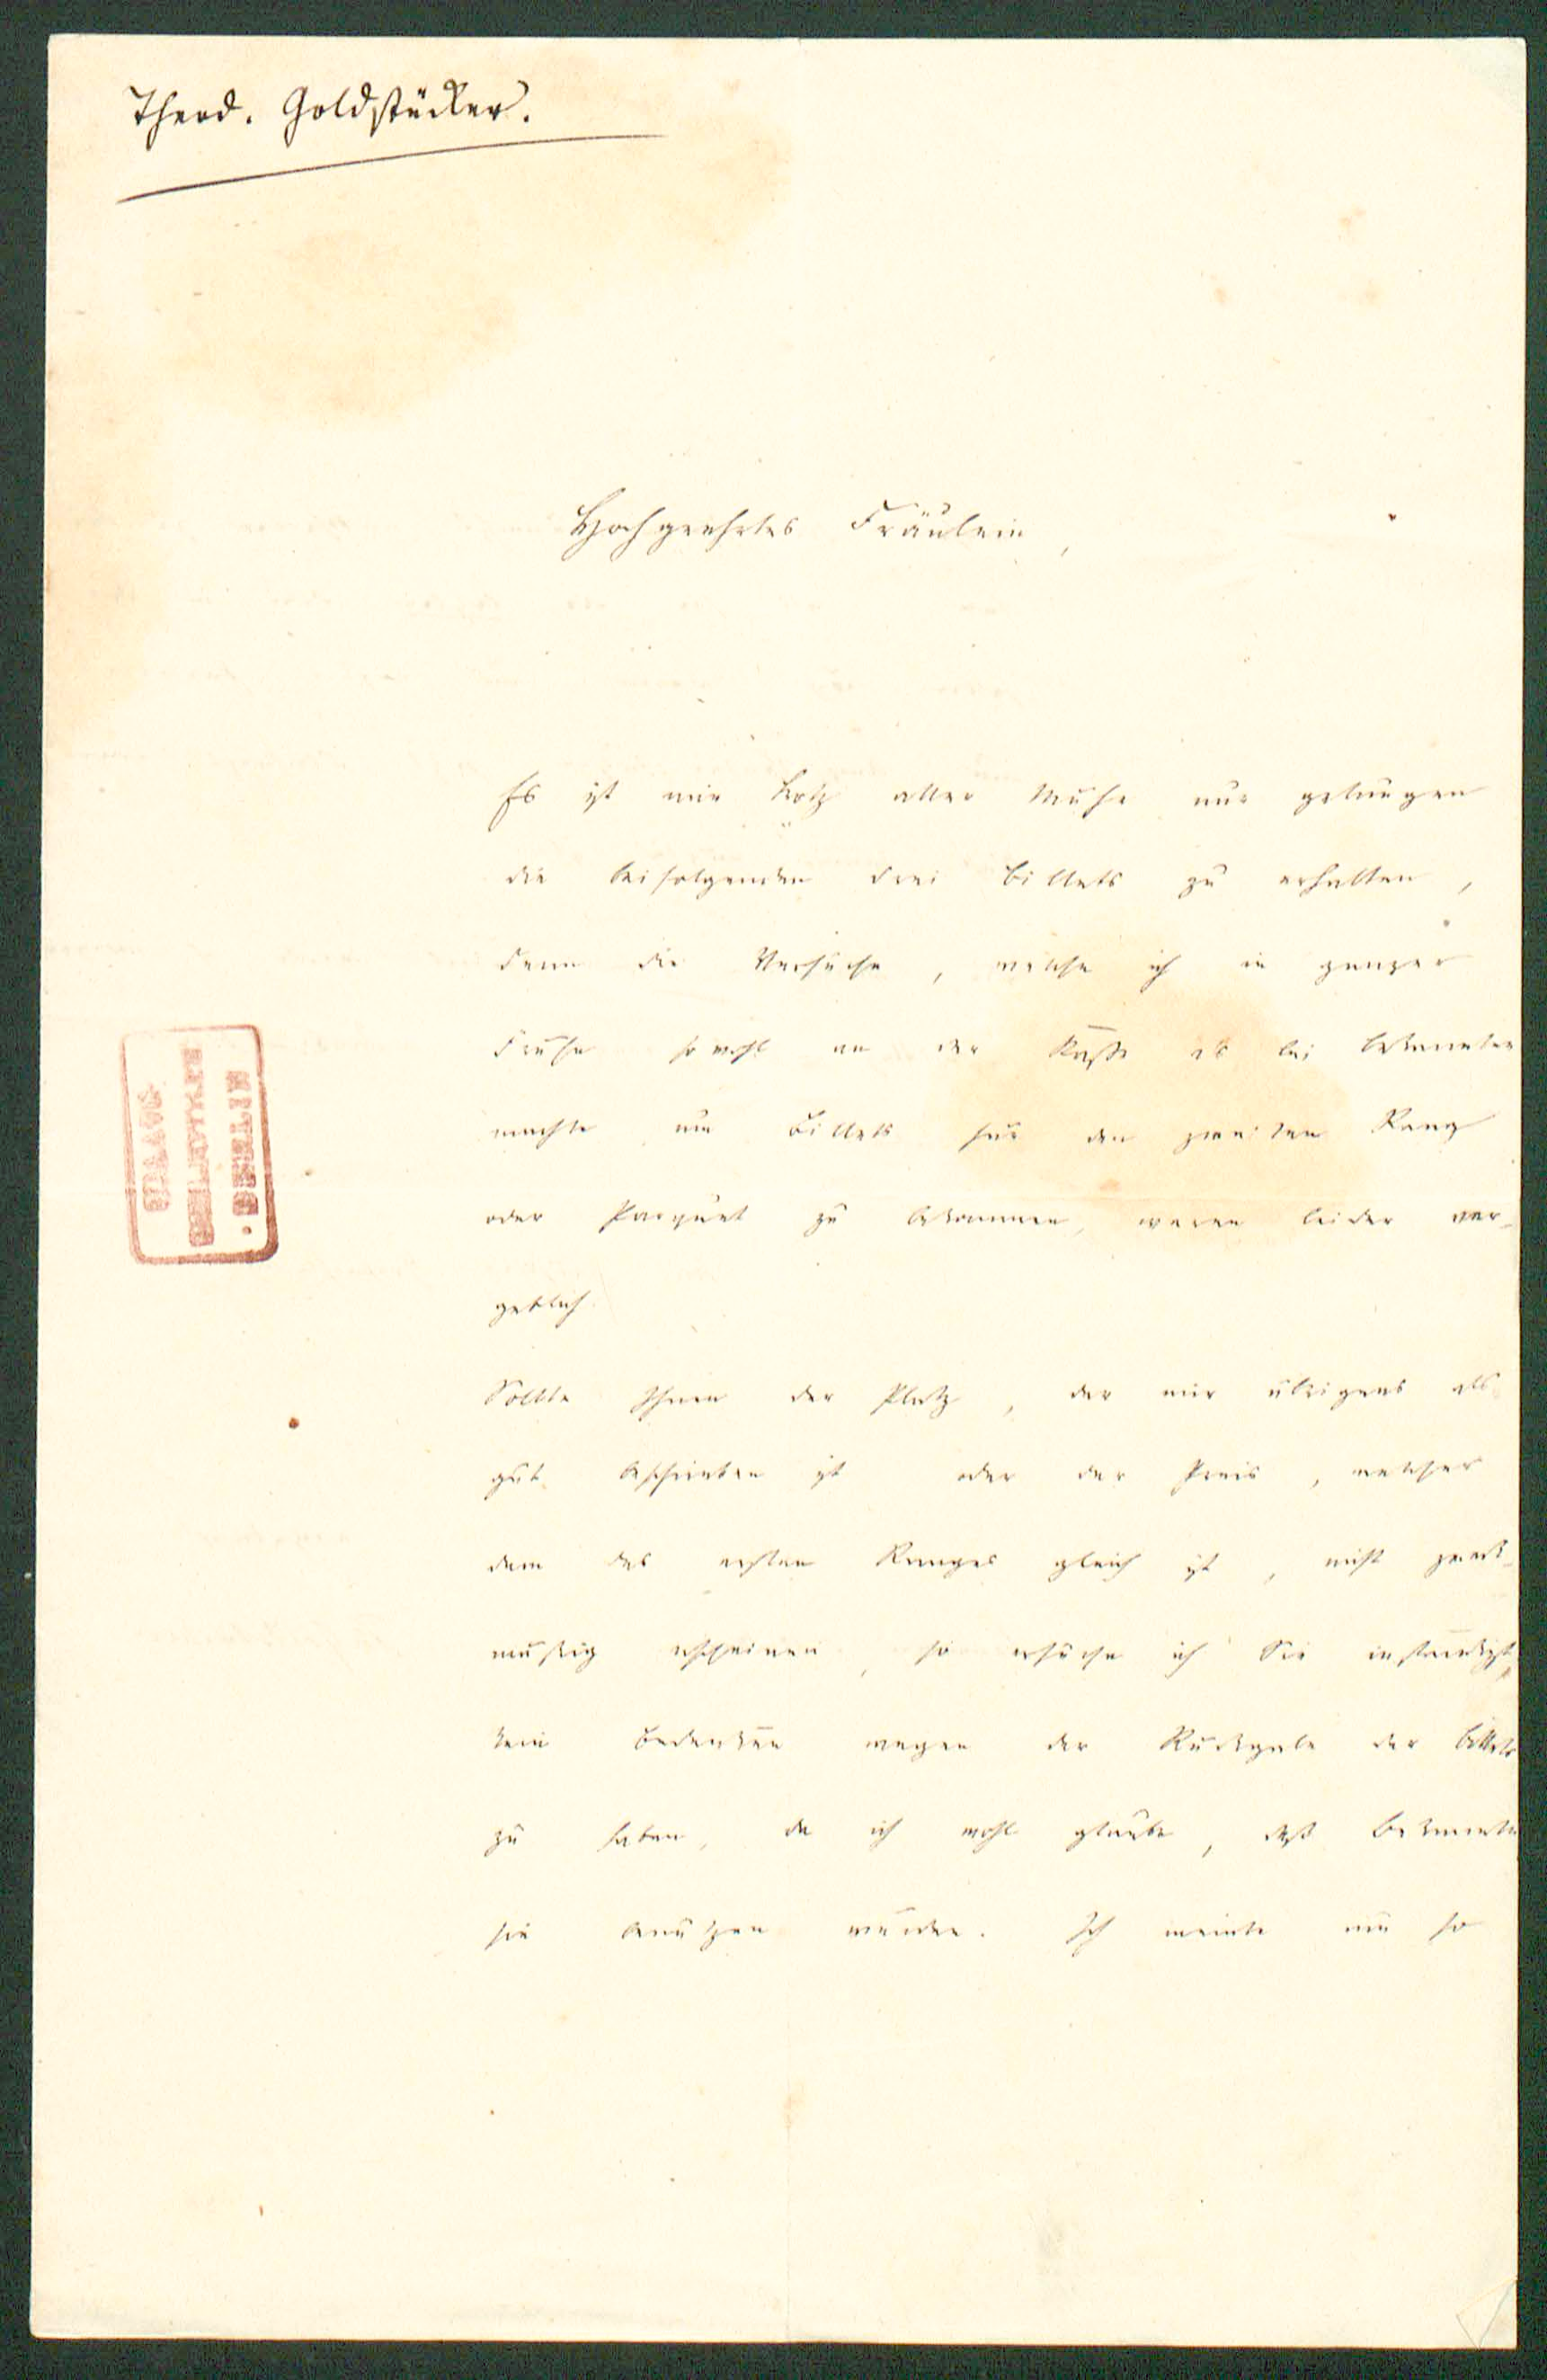 Theod. Goldstücker.
Hochgeehrtes Fräulein,
Es ist mir trotz aller Mühe nur gelungen
die beifolgenden drei Billets zu erhalten,
denn die Versuche, welche ich in ganzer
Frühe sowohl an der Kasse als bei Bekannten
machte um Billets für den zweiten Rang
oder Parquet zu bekommen, waren leider ver-
geblich.
Sollte Ihnen der Platz, der mir übrigens als
gut beschrieben ist oder der Preis, welcher
dem des ersten Ranges gleich ist, nicht zweck-
mäßig erscheinen, so ersuche ich Sie inständigst,
kein Bedenken wegen der Rückgabe der Billets
zu haben, da ich wohl glaube, daß Bekannte
sie benützen würden. Ich meinte nur so